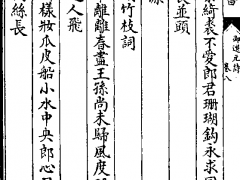 御選元詩 卷八
綺裘不愛郎君珊瑚鈎永求
並頭
竹枝詞
離離春盡王孫尚未歸風度
人飛
樣妝瓜皮船小水中央郎心
絲長